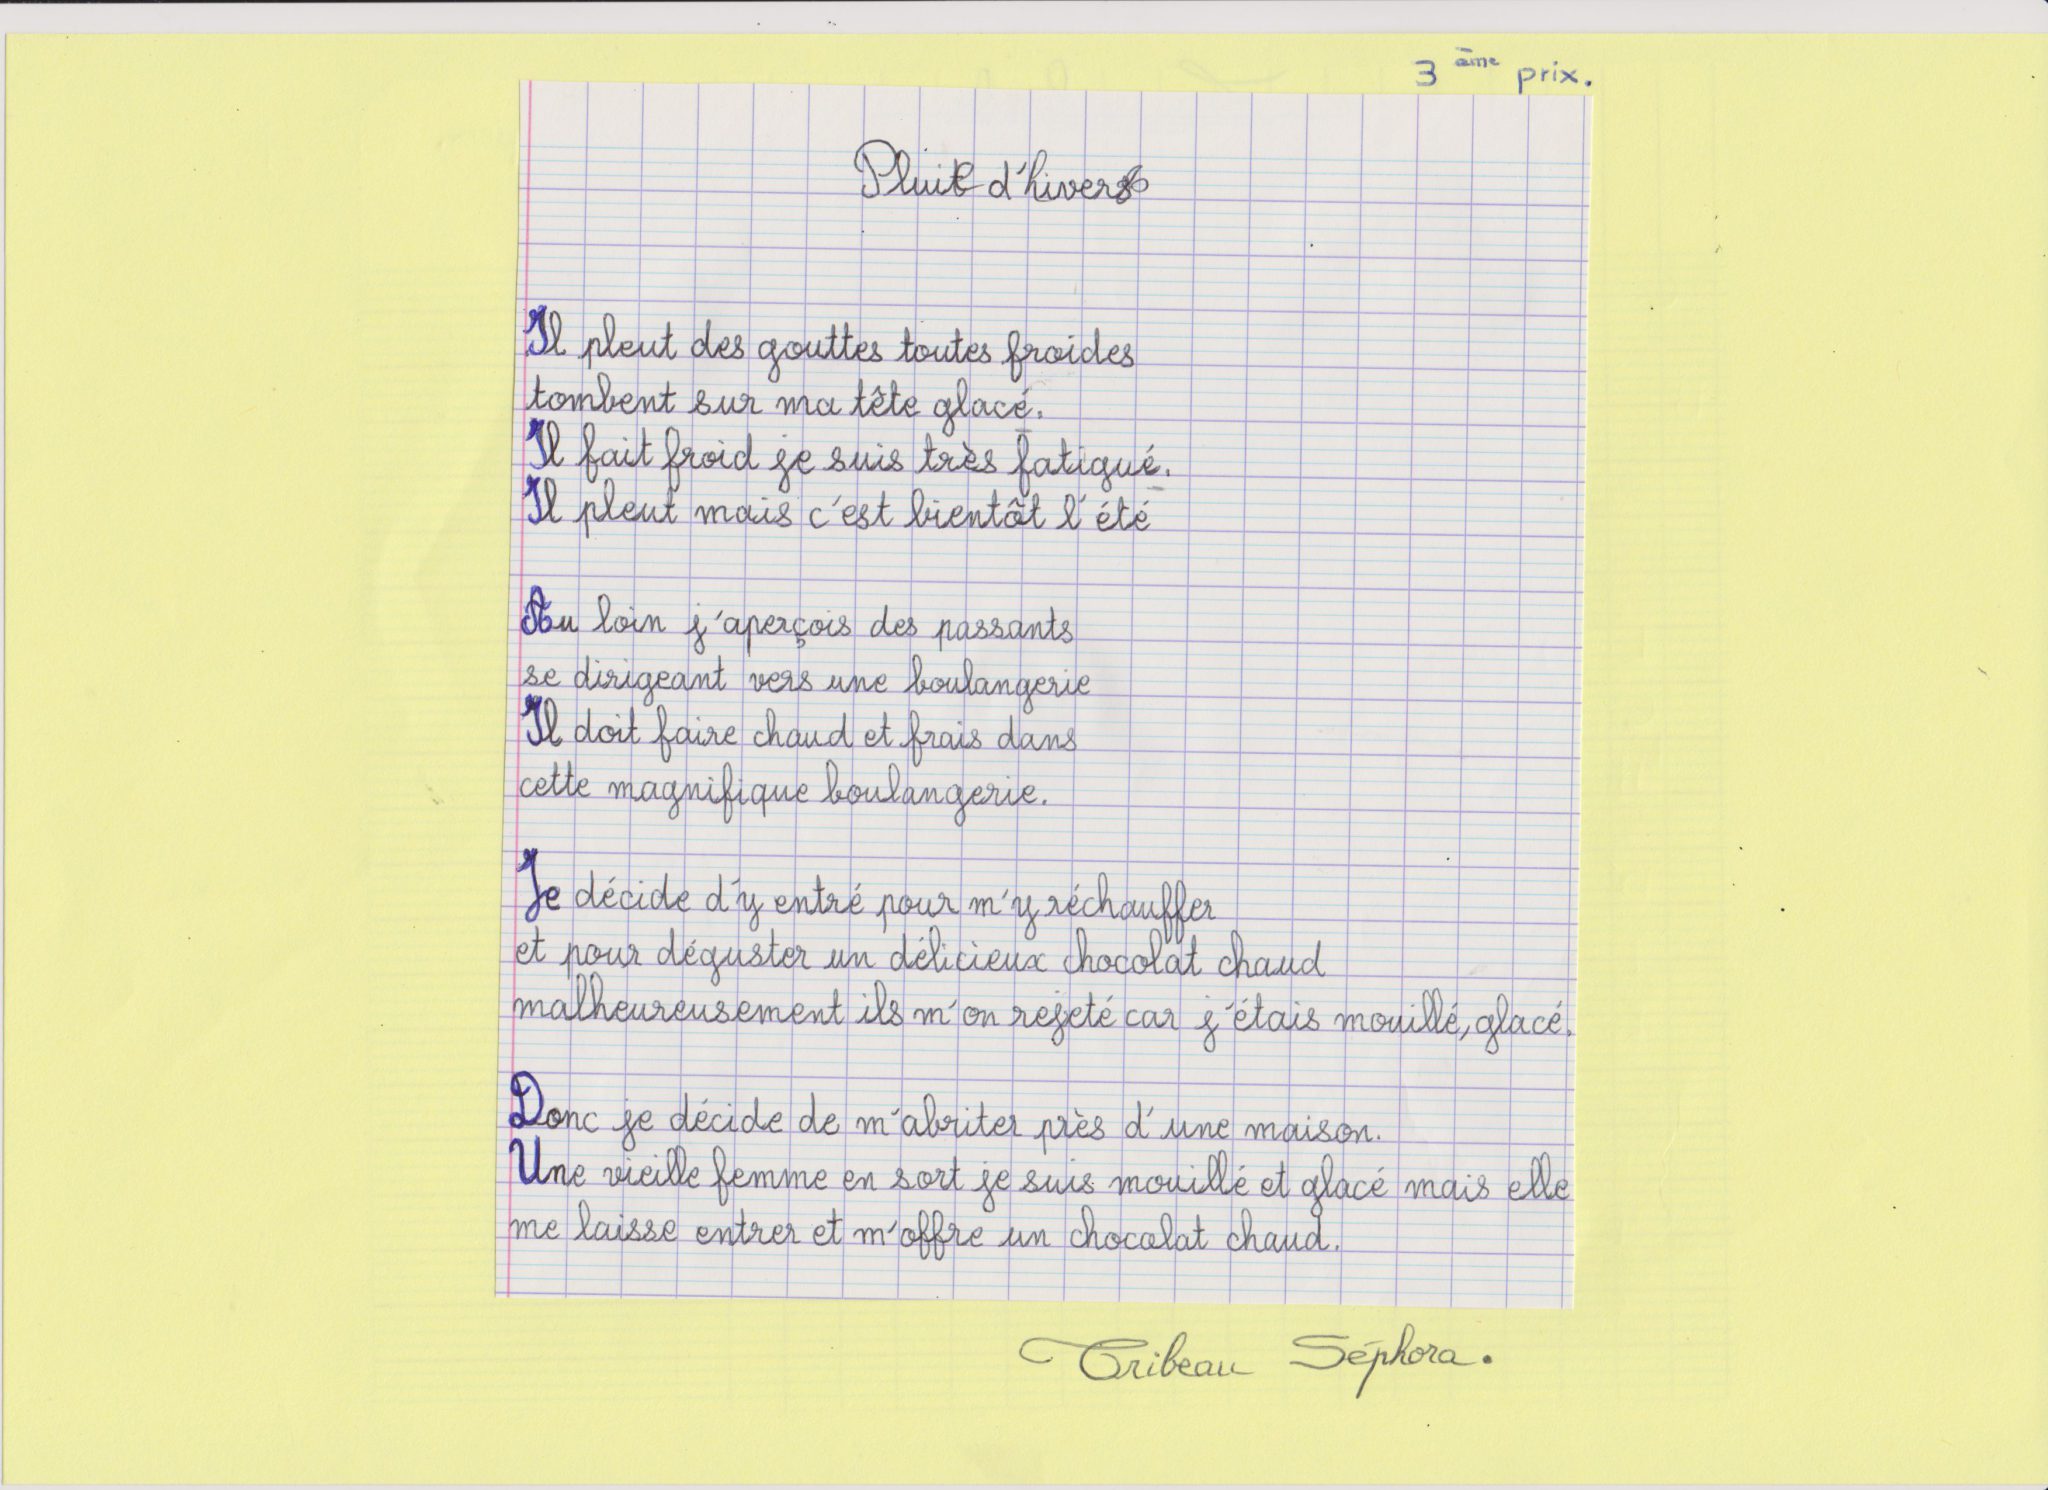 3 ème prix.
Pluie d'hiver
Il pleut des gouttes toutes froides
tombent sur ma tête glacé.
Il fait froid je suis très fatigué.
Il pleut mais c'est bientôt l'été
Au loin j'aperçois des passants
se dirigeant vers une boulangerie
Il doit faire chaud et frais dans
cette magnifique boulangerie.
Je décide d'y entré pour m'y réchauffer
et pour déguster un délicieux chocolat chaud
malheureusement ils m'on rejeté car j'étais mouillé, glacé.
Donc je décide de m'abriter près d'une maison.
Une vieille femme en sort je suis mouillé et glacé mais elle
me laisse entrer et m'offre un chocolat chaud.
Tribeau Séphora.